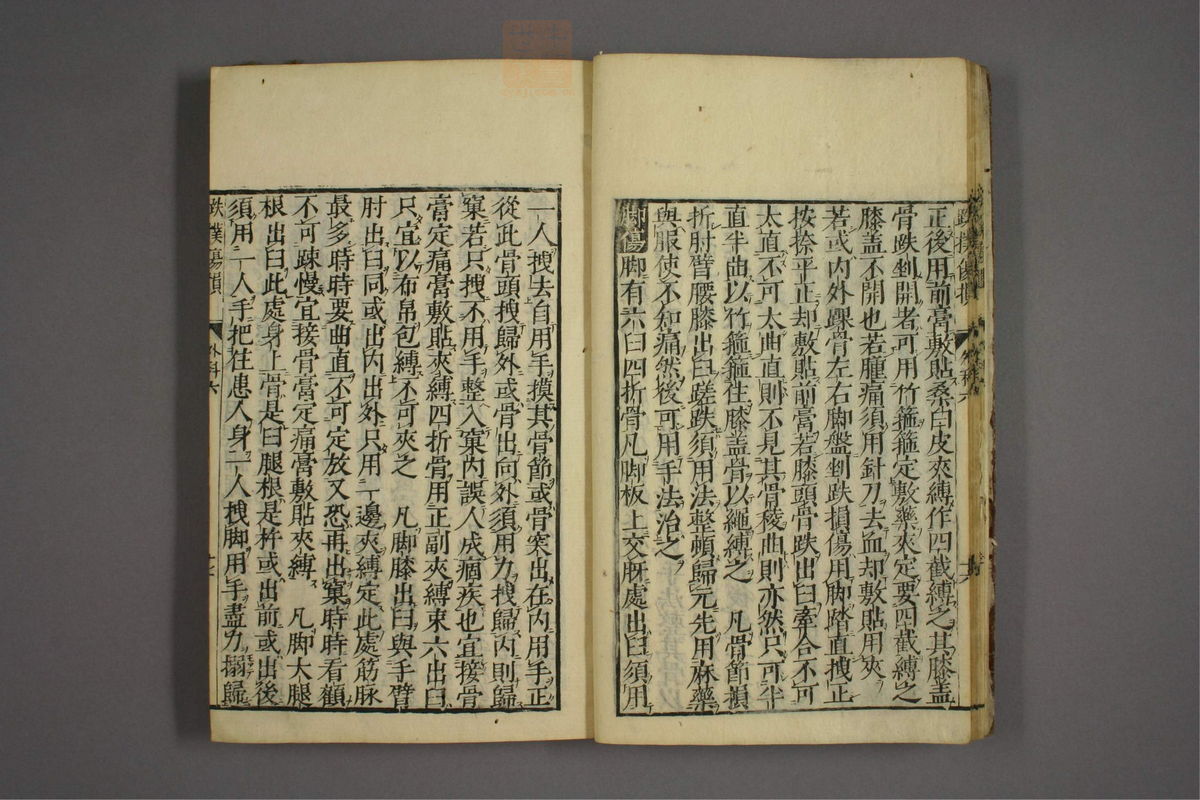 正後用前膏敷貼桑白皮夾縛作四截縛之其膝蓋
骨跌剉開者可用竹箍箍定敷藥夾定要四截縛之
膝蓋不開也若腫痛須用針刀去血却敷貼用夾
若或内外踝骨左右脚盤剉跌損傷用脚踏直拽正
按捺平正却敷貼前膏若膝頭骨跌出臼牽合不可
太直不可太曲直則不見其骨稜曲則亦然只可半
直半曲以竹箍箍住膝蓋骨以繩縛之　凡骨節損
折肘臂腰膝出臼蹉跌須用法整頓歸元先用麻藥
與服使不知痛然後可用手法治之
脚傷　脚有六臼四折骨凡脚板上交肐處出臼須用
一人拽去自用手摸其骨節或骨突出在内用手正
從此骨頭拽歸外或骨出向外須用力拽歸内則歸
窠若只拽不用手整入窠内誤人成痼疾也宜接骨
膏定痛膏敷貼夾縛四折骨用正副夾縛束六出臼
只宜以布帛包縛不可夾之　凡脚膝出臼與手臂
肘出臼同或出内出外只用一邊夾縛定此處筋脉
最多時時要曲直不可定放又恐再出窠時時看顧
不可疎慢宜接骨膏定痛膏敷貼夾縛　凡脚大腿
根出臼此處身上骨是臼腿根是杵或出前或出後
須用一人手把住患人身二人拽脚用手盡力搦歸
跌撲傷損
外科六